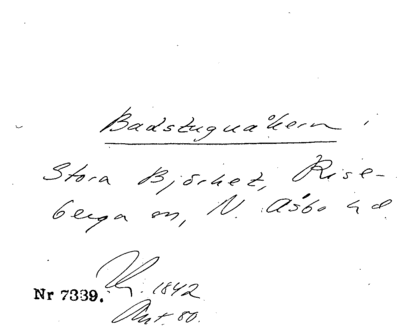 Badstuguåkern
Stora Björket, Rise-
berga sn, N. Åsbo hd.
1842
Nr 7339.
Akt. 80.